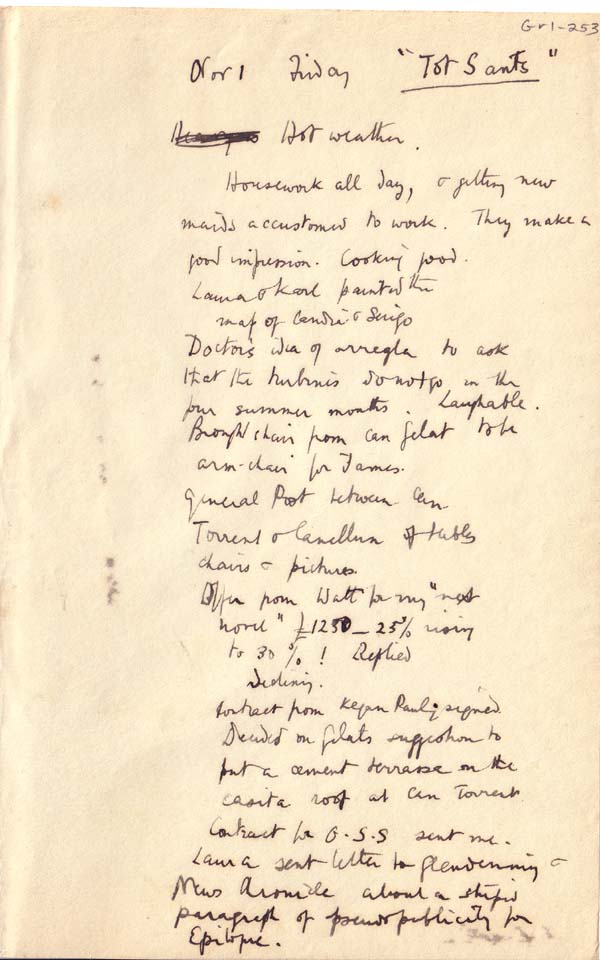 Gr1-253
Nov 1 Friday "Tot Sants"
Hot weather.
Housework all day, & getting new
maids accustomed to work. They make a
good impression. Cooking good.
Laura & Karl painted the
map of Candia & Serifo
Doctor's idea of arregla to ask
that the turbinis do not go in the
four summer months. Laughable.
Brought chair from Can Gelat to be
arm-chair for James.
General Post between Can
Torrent & Canellun of tables
chairs & pictures.
Offer from Watt for my "next
novel" £1250 – 25% rising
to 30%! Replied
declining.
Contract from Kegan Paul; signed.
Decided on Gelat's suggestion to
put a cement terrassa on the
casita roof at Can Torrent
Contract for O.S.S sent me.
Laura sent letter to Glendinning &
News Chronicle about a stupid
paragraph of pseudopublicity for
Epilogue.